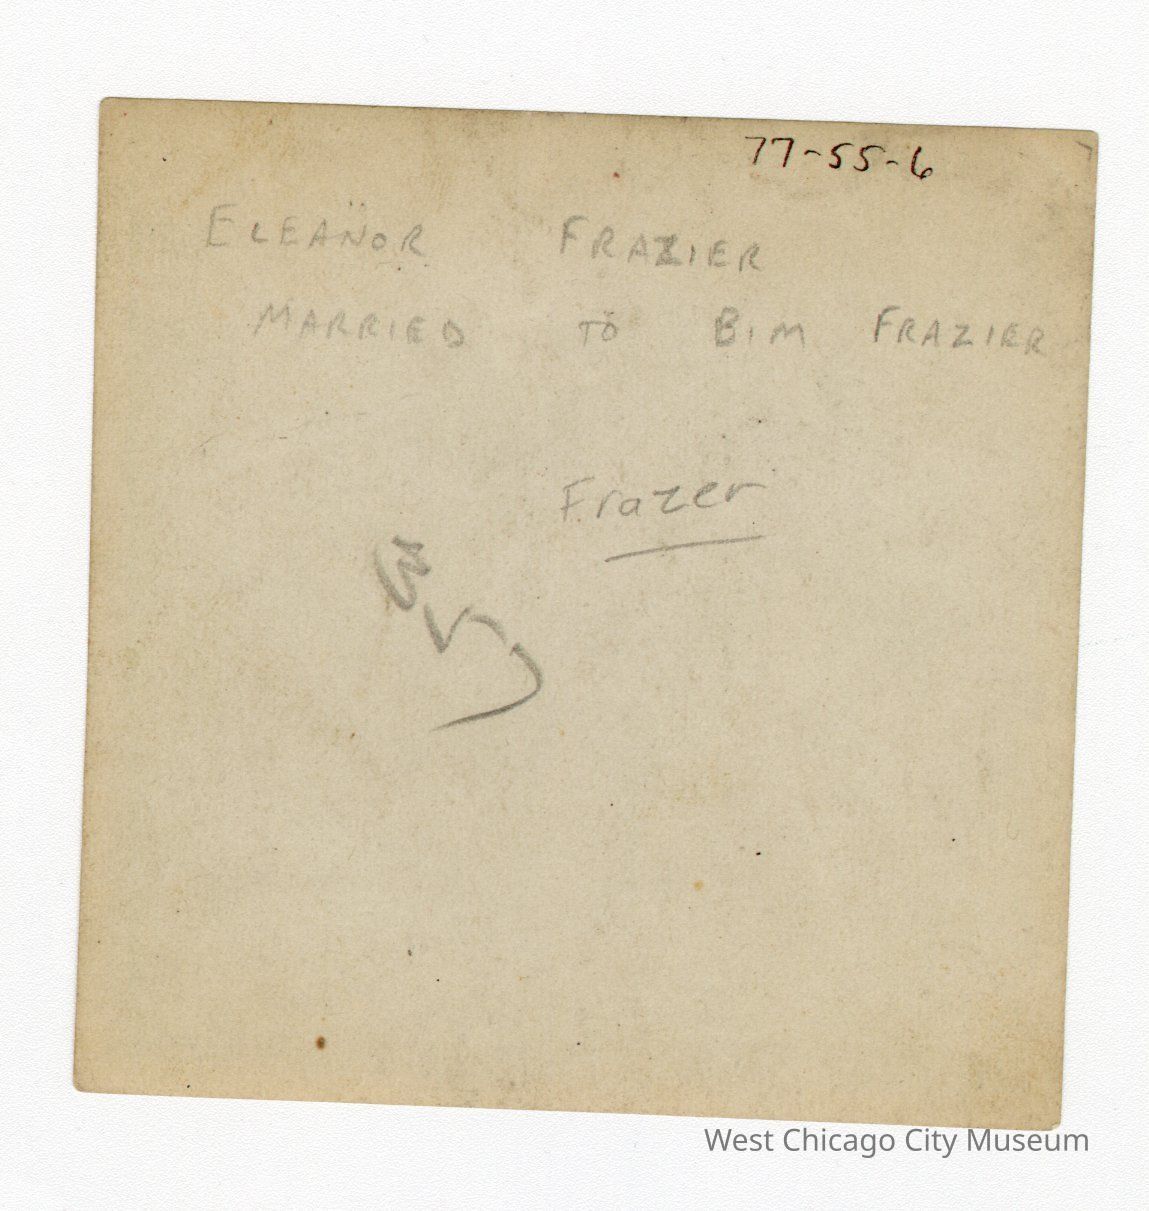 77-55-6
ELEANOR FRAZIER
MARRIED TO BIM FRAZIER
Frazer
West Chicago City Museum